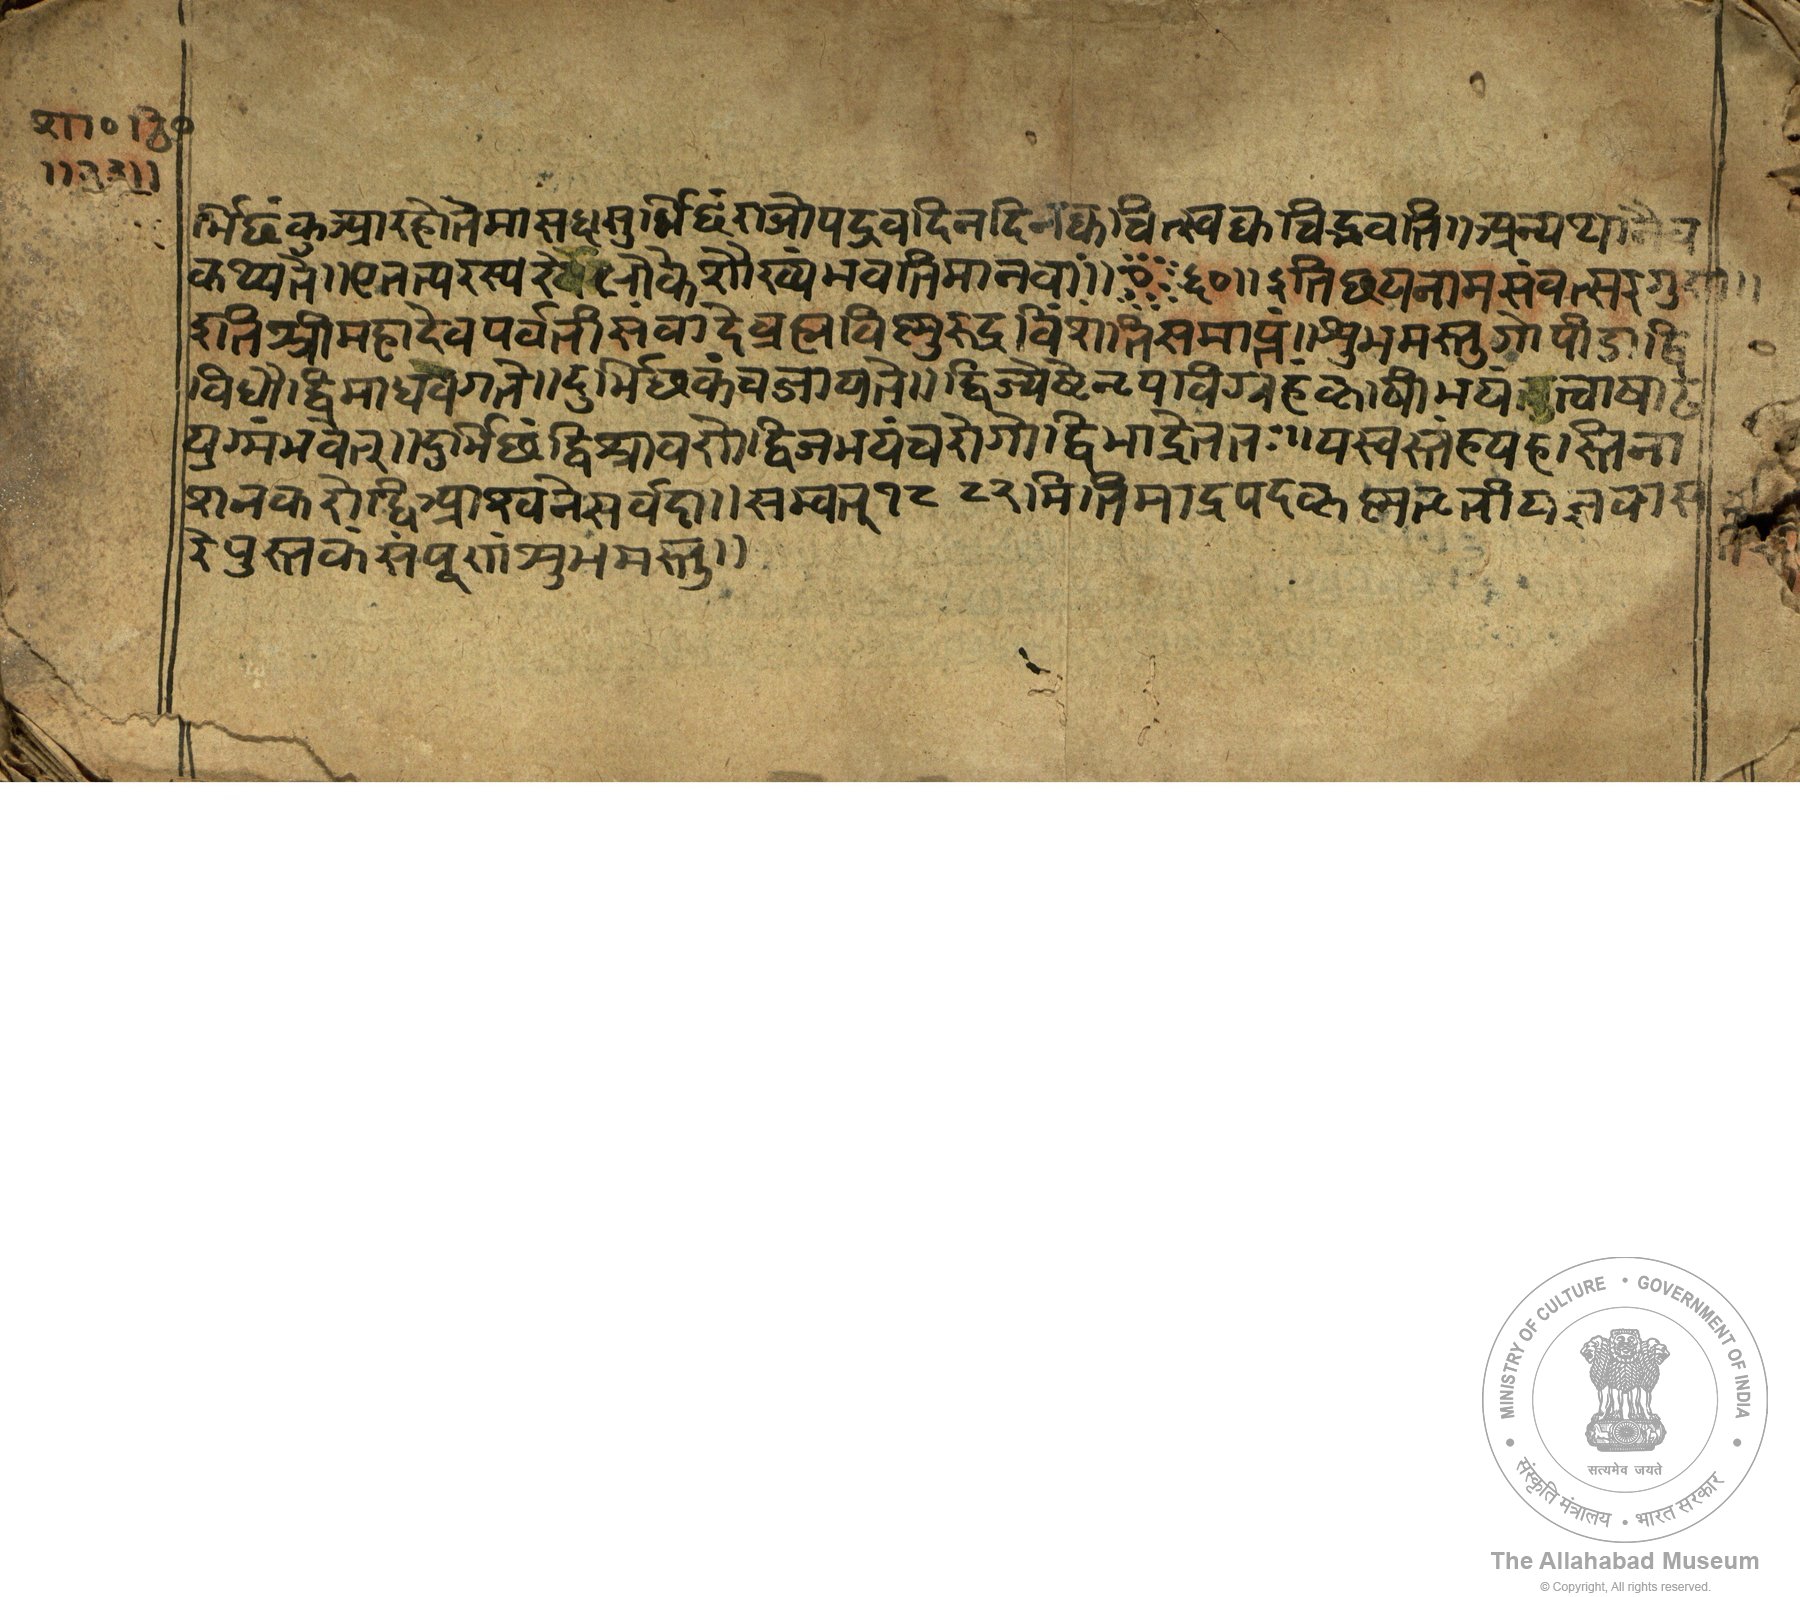 शा० ठि०
॥२३॥
र्भिछंकुआरहोतैमासषासुर्भिछं राजौपद्रव दिनदिन क्वचित्त्स्वक्वचिद्भवति॥अन्यथानैव
कथ्यते॥एतत्परस्य लोकेशौरव्यंभवतिमानवां॥६०॥इतिछयनामसंवत्सर
इतिश्रीमहादेवपर्वतीसंवादेब्रह्मविष्णुरुद्रविंशतिसमाप्तं॥शुभमस्तुगोपीडाद्वि
विधौद्विमाधवगते॥दुर्भिछकंचजायते॥द्विज्येष्टेनृपविग्रहं
युग्मंभवेत्॥दुर्भिछंद्विश्रावणे।द्विजभयंचरोगोद्विभाद्रेततः॥यस्वस्तंहयहस्तिना
शनकरोद्विआश्वनेसर्वदा॥सम्वत्१८८२मितिभाद्रपदकृष्णतृतीया
रेपुस्तकंसंपूर्णंशुभमस्तु॥
MINISTRY OF CULTURE • GOVERNMENT OF INDIA
सत्यमेव जयते
संस्कृति मंत्रालय • भारत सरकार
The Allahabad Museum
© Copyright, All rights reserved.